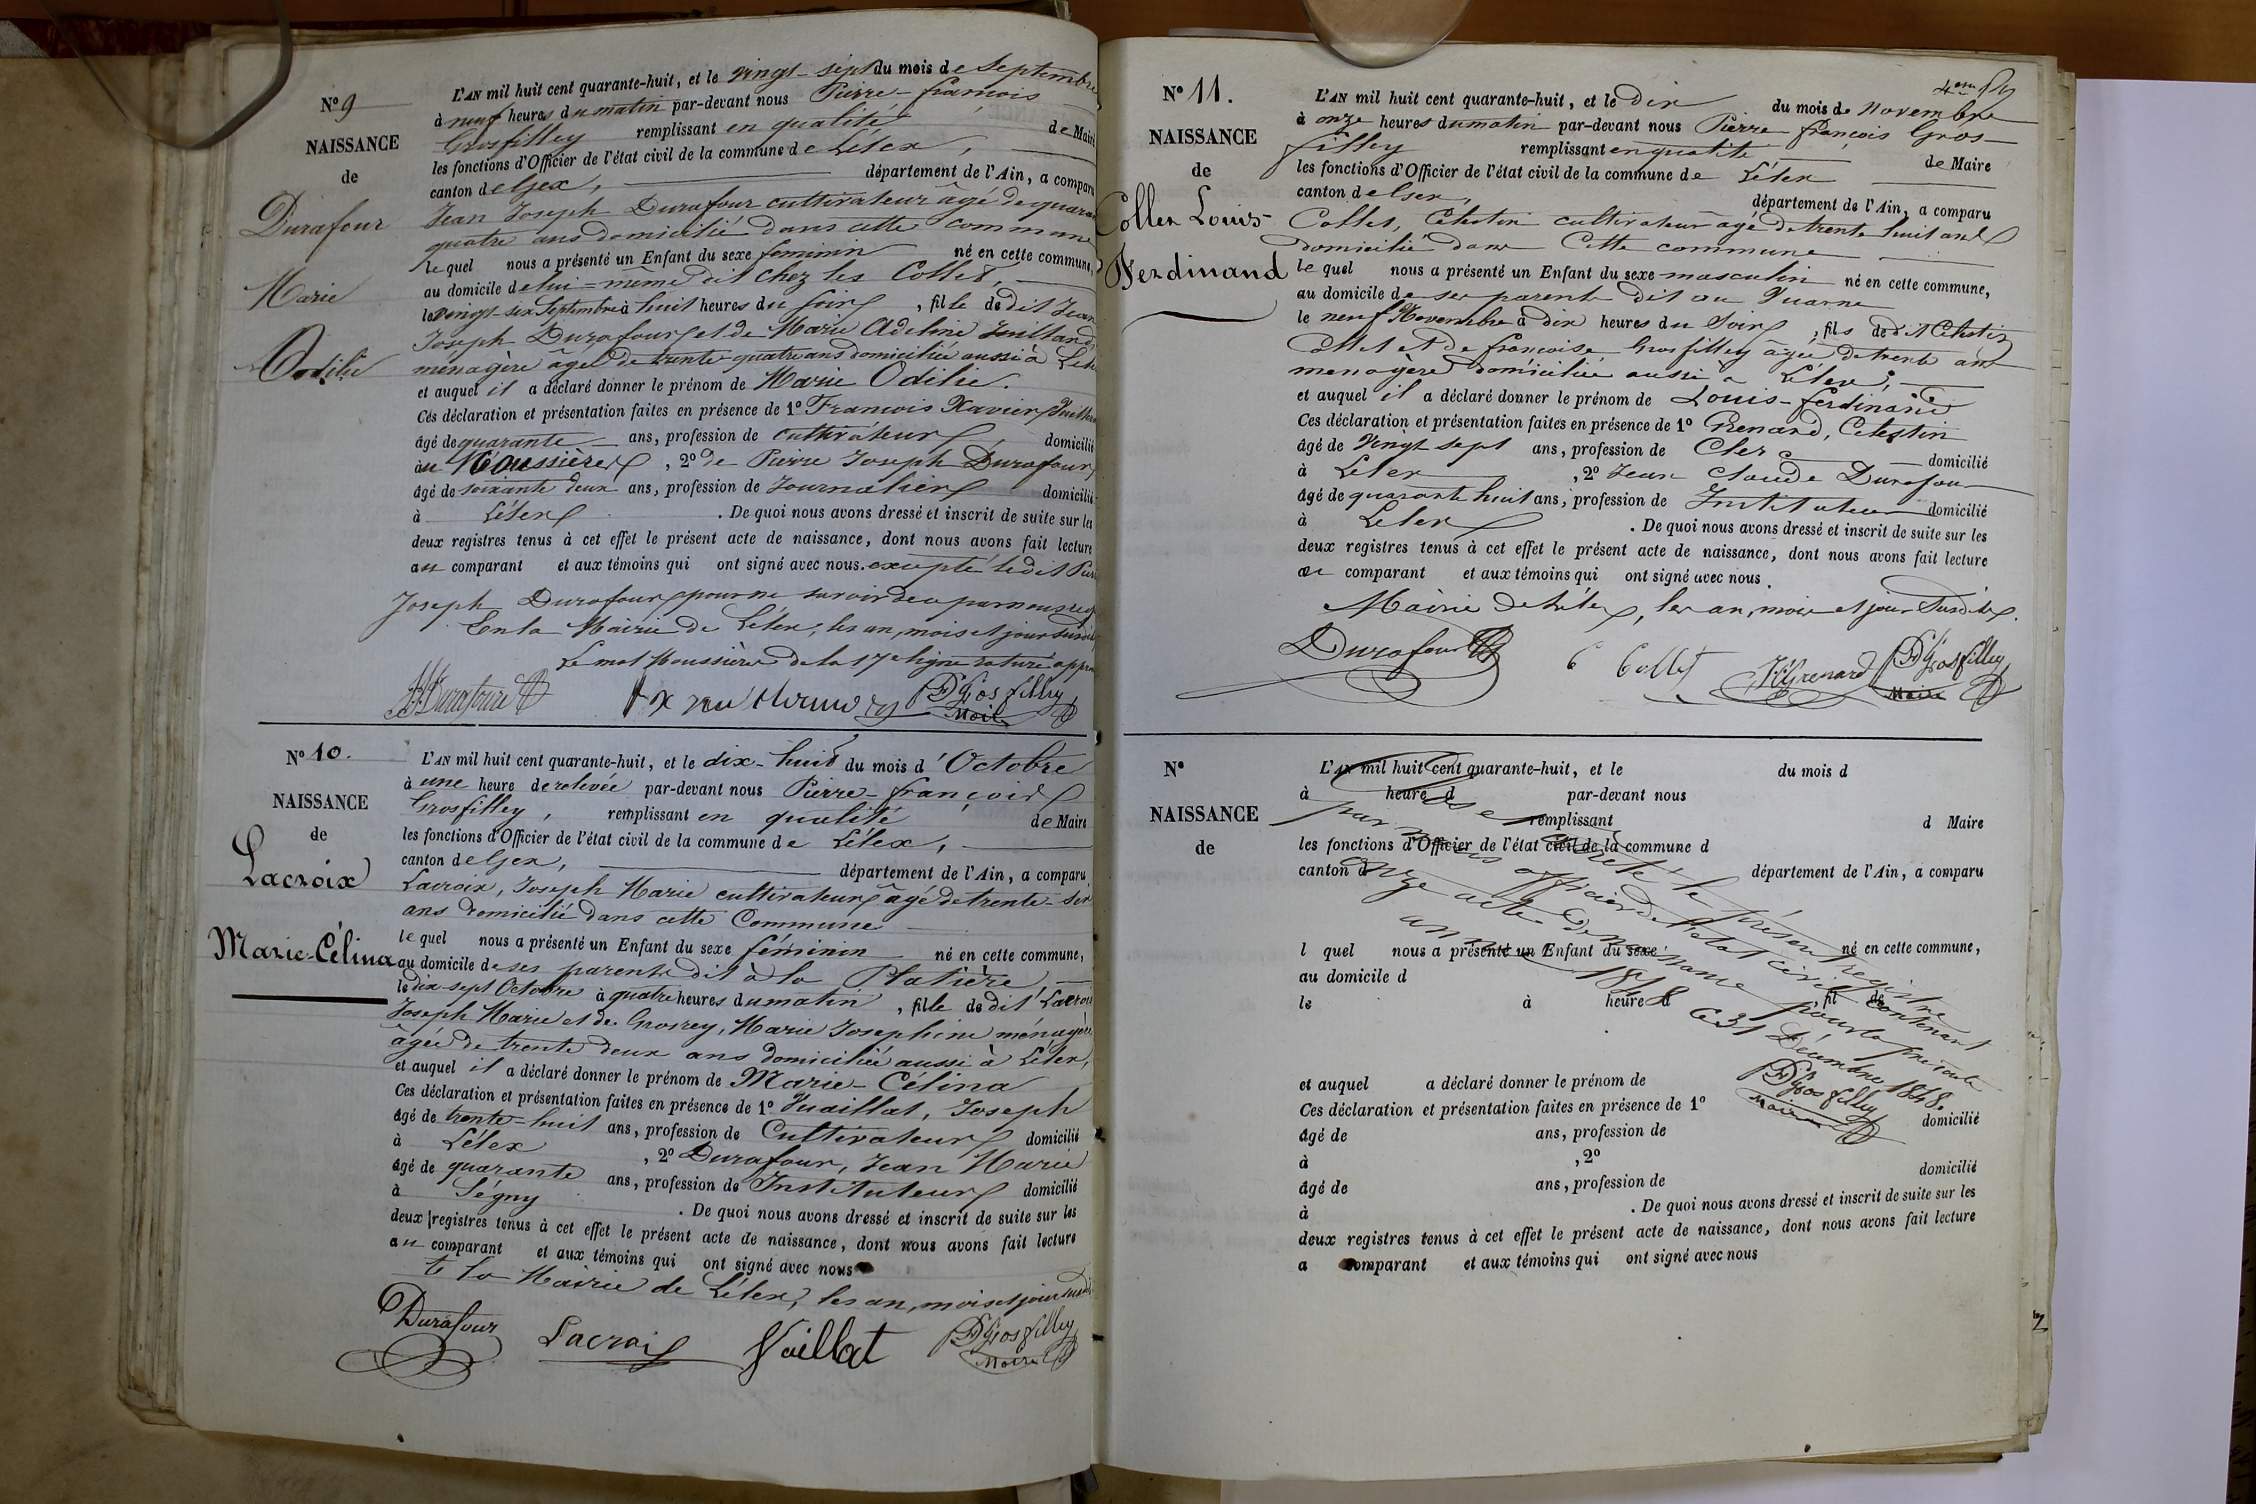 N° 9
NAISSANCE
de
Durafour
Marie
Odilie
L'AN mil huit cent quarante-huit, et le vingt-sept du mois de Septembre
à neuf heures du matin par-devant nous Pierre-françois
Grosfilley remplissant en qualité de Maire
les fonctions d'Officier de l'état civil de la commune de Lélex,
canton de Gex, département de l'Ain, a comparu
Jean Joseph Durafour cultivateur âgé de quarante
quatre ans domicilié dans cette commune
lequel nous a présenté un Enfant du sexe feminin né en cette commune,
au domicile de lui-même dit chez les Collet,
le vingt-six Septembre à huit heures du soir, fille de dit Jean
Joseph Durafour et de Marie Adeline Juilland
ménagère âgée de trente-quatre ans domiciliée aussi à Lélex
et auquel il a déclaré donner le prénom de Marie Odilie.
Ces déclaration et présentation faites en présence de 1° François Xavier
âgé de quarante ans, profession de cultivateur domicilié
au Moussières, 2° de Pierre Joseph Durafour
âgé de soixante deux ans, profession de Journalier domicilié
à Lélex. De quoi nous avons dressé et inscrit de suite sur les
deux registres tenus à cet effet le présent acte de naissance, dont nous avons fait lecture
au comparant et aux témoins qui ont signé avec nous. excepté ledit Pierre
Joseph Durafour pour ne savoir de ce par nous
En la Mairie de Lélex, les an, mois et jour susdits
Le mot Moussières de la 17e ligne raturé
Durafour PF Grosfilley
Maire
N° 10.
NAISSANCE
de
Lacroix
Marie-Célina
L'AN mil huit cent quarante-huit, et le dix-huit du mois d'Octobre
à une heure de relevée par-devant nous Pierre-françois
Grosfilley, remplissant en qualité de Maire
les fonctions d'Officier de l'état civil de la commune de Lélex,
canton de Gex, département de l'Ain, a comparu
Lacroix, Joseph Marie cultivateur âgé de trente-six
ans domicilié dans cette Commune
lequel nous a présenté un Enfant du sexe féminin né en cette commune,
au domicile de ses parents dit à la Platière,
le dix-sept Octobre à quatre heures du matin, fille de dit Lacroix
Joseph Marie et de Grosrey, Marie Josephine ménagère
âgée de trente deux ans domiciliée aussi à Lélex,
et auquel il a déclaré donner le prénom de Marie-Célina
Ces déclaration et présentation faites en présence de 1° Vuaillat, Joseph
âgé de trente-huit ans, profession de Cultivateur domicilié
à Lélex, 2° Durafour, Jean Marie
âgé de quarante ans, profession de Instituteur domicilié
à Ségny. De quoi nous avons dressé et inscrit de suite sur les
deux registres tenus à cet effet le présent acte de naissance, dont nous avons fait lecture
au comparant et aux témoins qui ont signé avec nous
la Mairie de Lélex, les an, mois et jour susdits
Durafour Lacroix Vaillat PF Grosfilley
Maire
4em
N° 11.
NAISSANCE
de
Collet Louis-
Ferdinand
L'AN mil huit cent quarante-huit, et le dix du mois de novembre
à onze heures du matin par-devant nous Pierre françois Gros-
filley remplissant en qualité de Maire
les fonctions d'Officier de l'état civil de la commune de Lélex
canton de Gex, département de l'Ain, a comparu
Collet, Célestin cultivateur âgé de trente huit ans
domicilié dans Cette commune
lequel nous a présenté un Enfant du sexe masculin né en cette commune,
au domicile de ses parents dit au
le neuf Novembre à dix heures du Soir, fils de dit Célestin
Collet et de françoise Grosfilley âgée de trente ans
menagère domiciliée aussi a Lélex,
et auquel il a déclaré donner le prénom de Louis-ferdinand
Ces déclaration et présentation faites en présence de 1° Grenard, Célestin
âgé de Vingt sept ans, profession de Clerc domicilié
à Lelex, 2° Jean claude Durafour
âgé de quarante huit ans, profession de Instituteur domicilié
à Lelex. De quoi nous avons dressé et inscrit de suite sur les
deux registres tenus à cet effet le présent acte de naissance, dont nous avons fait lecture
au comparant et aux témoins qui ont signé avec nous.
Mairie de Lélex, les an, mois et jour Susdits.
Durafour C Collet Grenard PF Grosfilley
Maire
N°
NAISSANCE
de
L'AN mil huit cent quarante-huit, et le du mois d
à heure d par-devant nous
remplissant d Maire
les fonctions d'Officier de l'état civil de la commune d
canton d département de l'Ain, a comparu
l quel nous a présenté un Enfant du sexe né en cette commune,
au domicile d
le à heure d fil de
et auquel a déclaré donner le prénom de
Ces déclaration et présentation faites en présence de 1°
âgé de ans, profession de domicilié
à , 2°
âgé de ans, profession de domicilié
à . De quoi nous avons dressé et inscrit de suite sur les
deux registres tenus à cet effet le présent acte de naissance, dont nous avons fait lecture
a comparant et aux témoins qui ont signé avec nous
Clos et arrêté le présent registre
par nous officier de l'état civil contenant
onze actes de naissance pour la présente
année 1848 ce 31 Décembre 1848.
PF Grosfilley
Maire